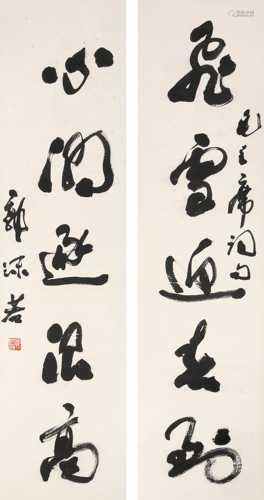 毛主席詞句
飛雪迎春到
心潮逐浪高
郭沫若